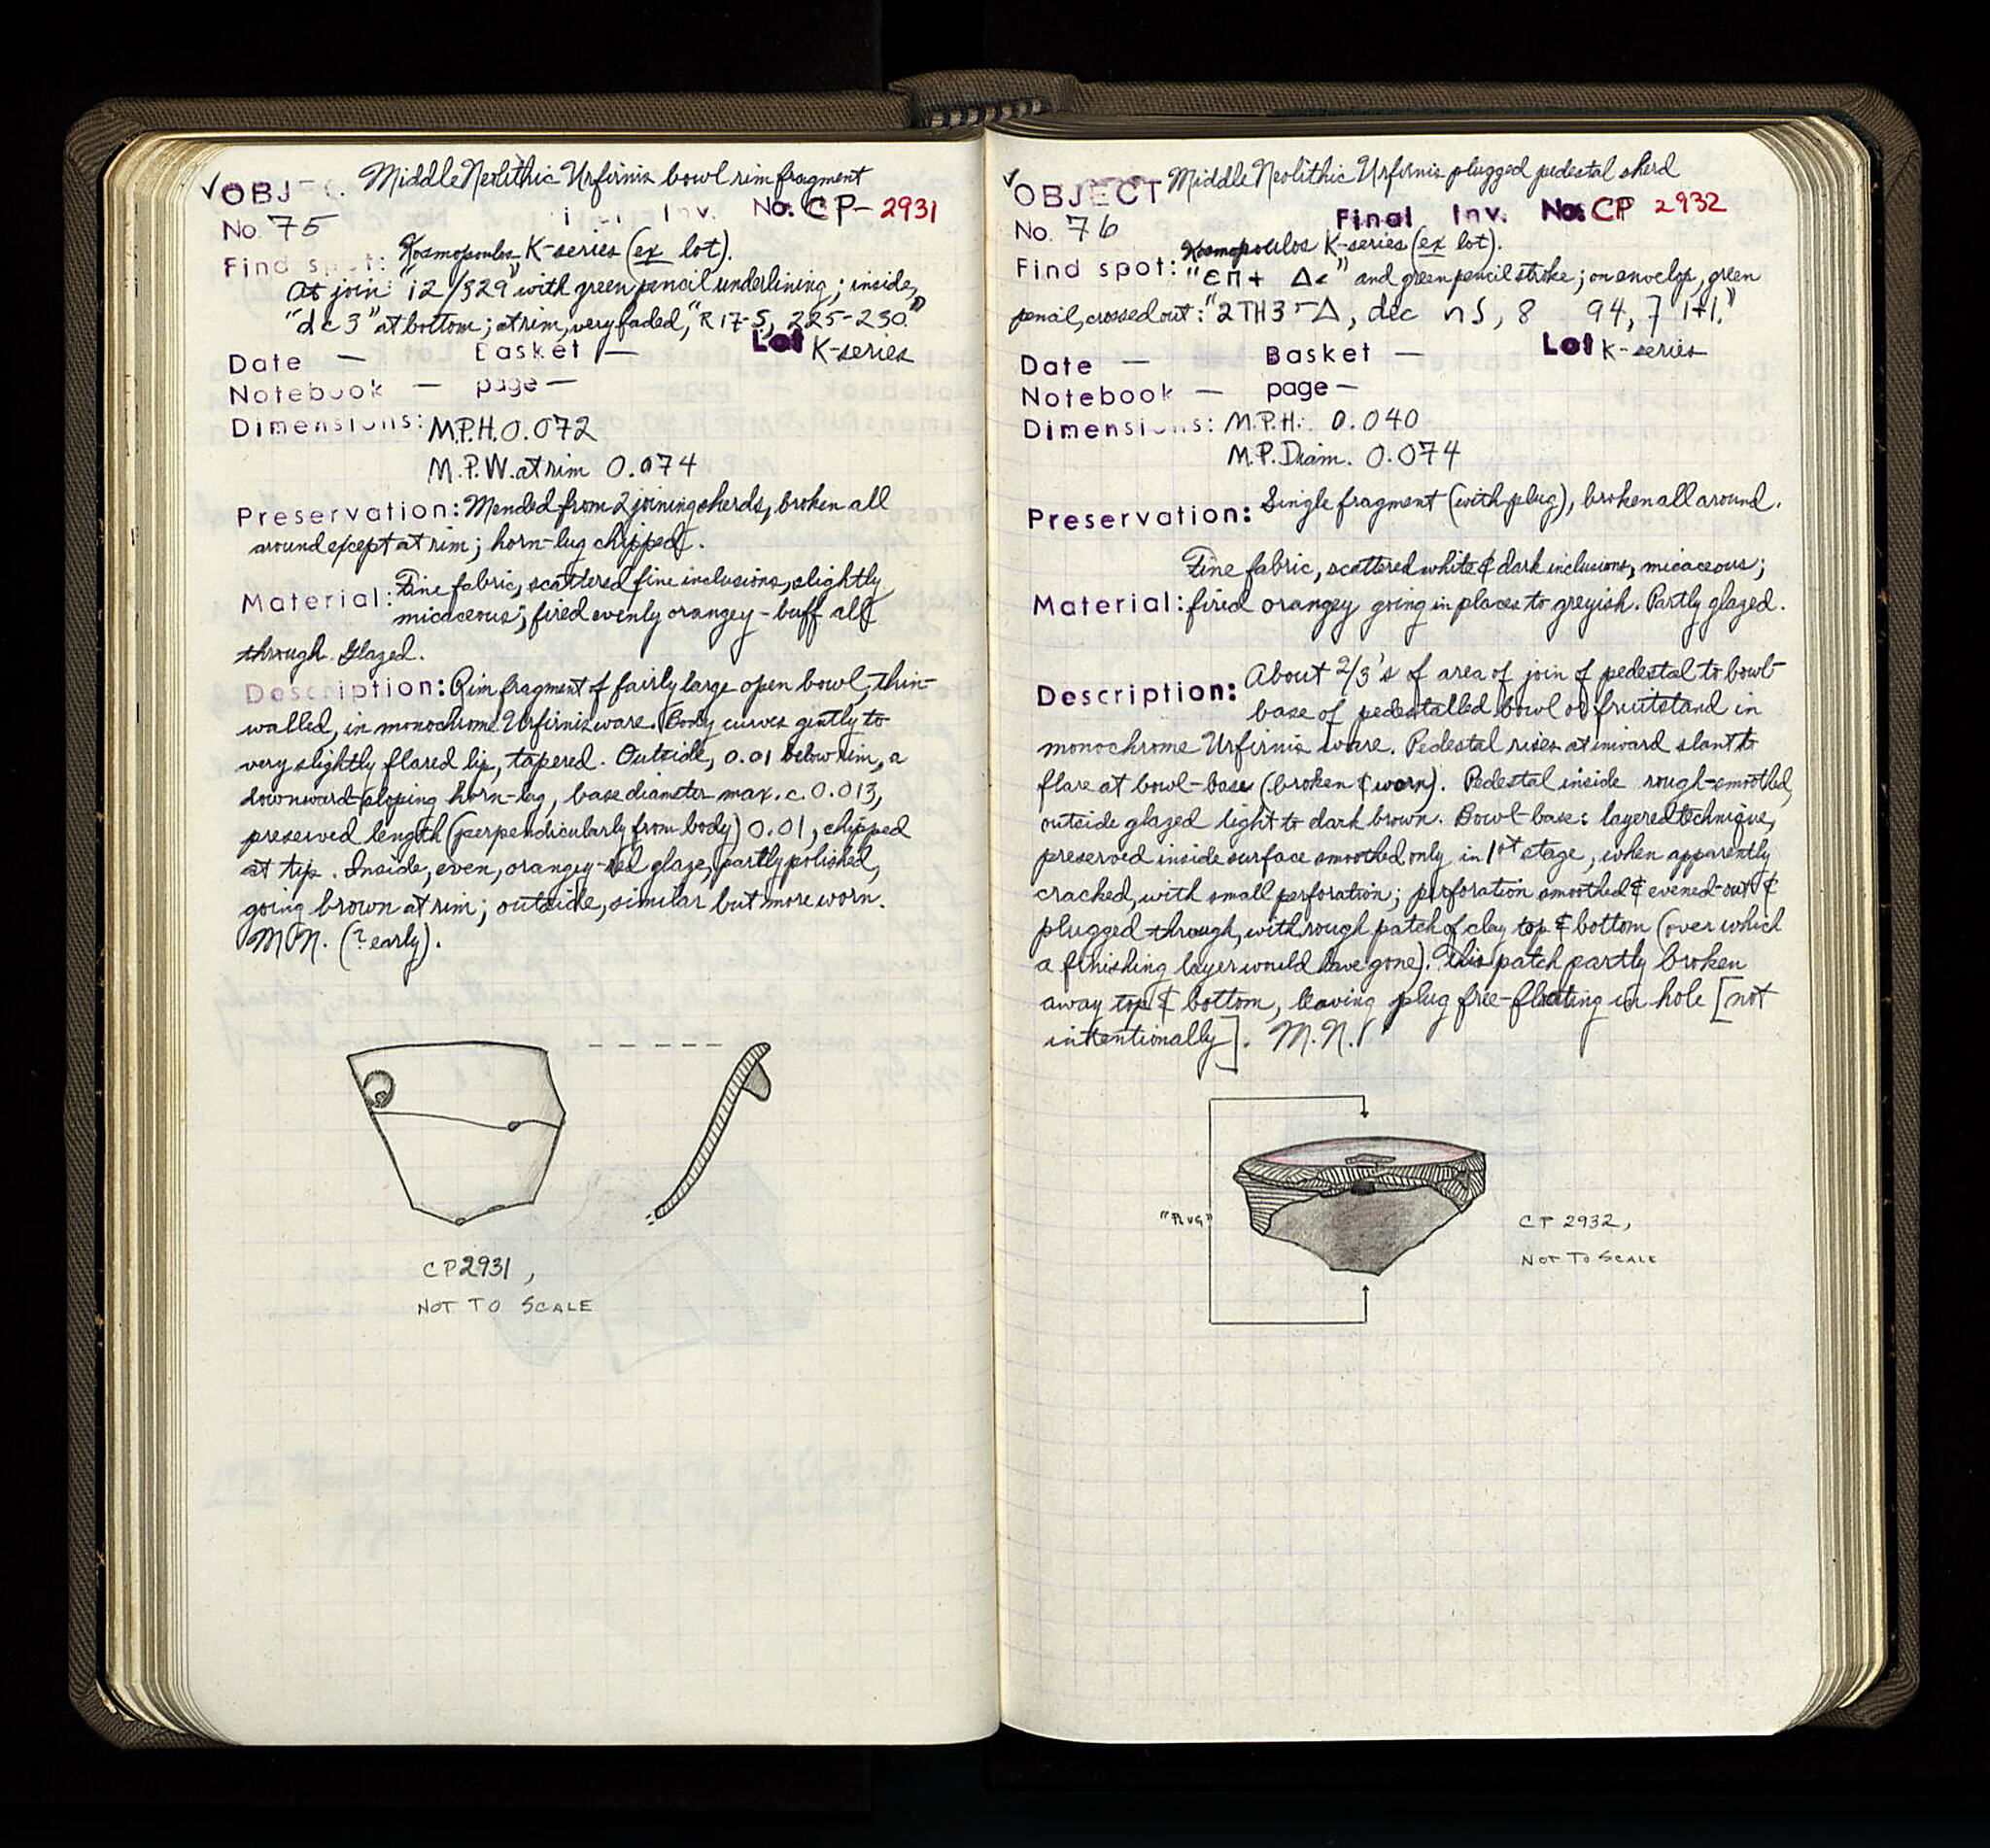 ✓ OBJEC Middle Neolithic Urfirnis bowl rim fragment
No. 75 Inv. No. CP-2931
Kosmopoulos K-series (ex lot).
Find spot:
At join "i2/329" with green pencil underlining; inside,
"dc3" at bottom; at rim, very faded, "R17-S, 225-230."
Date — Basket — Lot K-series
Notebook — page —
Dimensions: M.P.H. 0.072
M.P.W. at rim 0.074
Preservation: Mended from 2 joining sherds, broken all
around except at rim; horn-lug chipped.
Material: Fine fabric, scattered fine inclusions, slightly
micaceous; fired evenly orangey-buff all
through. Glazed.
Description: Rim fragment of fairly large open bowl, thin-
walled, in monochrome Urfirnis ware. Body curves gently to
very slightly flared lip, tapered. Outside, 0.01 below rim, a
downward-sloping horn-lug, base diameter max. c. 0.013,
preserved length (perpendicularly from body) 0.01, chipped
at tip. Inside, even, orangey-red glaze, partly polished,
going brown at rim; outside, similar but more worn.
MN. (? early).
CP2931,
NOT TO SCALE
✓ OBJECT Middle Neolithic Urfirnis plugged pedestal sherd
No. 76 Final Inv. No. CP 2932
Kosmopoulos K-series (ex lot).
Find spot: "επ+ Δc" and green pencil stroke; on envelop, green
pencil, crossed out: "2TH3-Δ, dec nS, 8 94, 7 1+1."
Date — Basket — Lot K-series
Notebook — page —
Dimensions: M.P.H.: 0.040
M.P. Diam. 0.074
Preservation: Single fragment (with plug), broken all around.
Fine fabric, scattered white & dark inclusions, micaceous;
Material: fired orangey going in places to greyish. Partly glazed.
Description: About 2/3's of area of join of pedestal to bowl-
base of pedestalled bowl or fruitstand in
monochrome Urfirnis ware. Pedestal rises at inward slant to
flare at bowl-base (broken & worn). Pedestal inside rough-smoothed,
outside glazed light to dark brown. Bowl-base: layered technique,
preserved inside surface smoothed only in 1st stage, when apparently
cracked, with small perforation; perforation smoothed & evened-out &
plugged through, with rough patch of clay top & bottom (over which
a finishing layer would have gone). This patch partly broken
away top & bottom, leaving plug free-floating in hole [not
intentionally]. M.N.
"PLUG"
CP 2932,
NOT TO SCALE